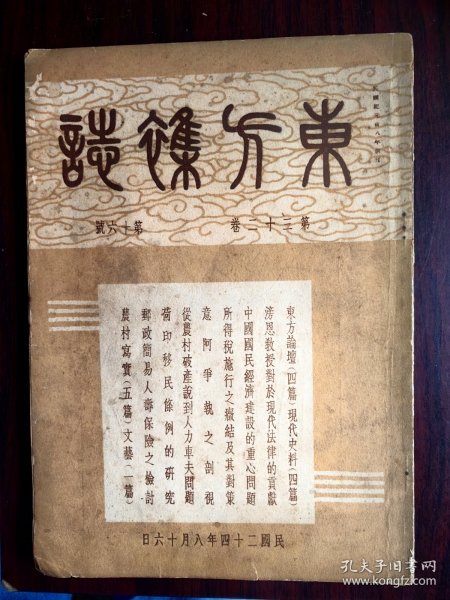 東方雜誌
第三十二卷
第十六號
東方論壇(四篇)現代史料(四篇)
滂恩教授對於現代法律的貢獻
中國國民經濟建設的重心問題
所得稅施行之癥結及其對策
意阿爭執之剖視
從農村破產說到人力車夫問題
荷印移民條例的研究
郵政簡易人壽保險之檢討
農村寫實(五篇)文藝(一篇)
民國二十四年八月十六日
孔夫子旧书网
www.kongfz.com